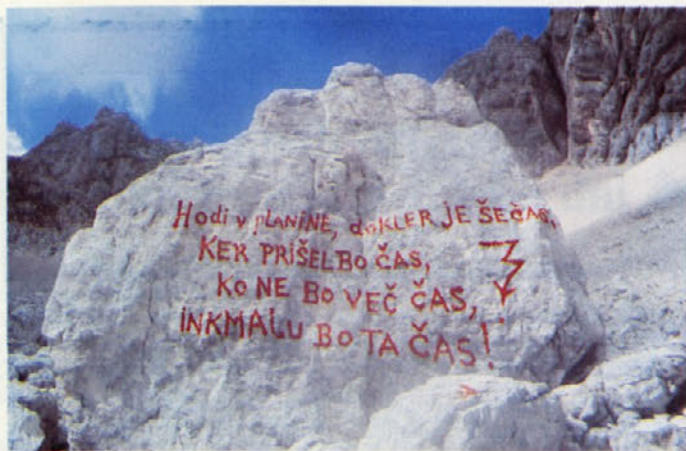 Hodi v PLANINE, doKLER JE ŠE ČAS,
KER PRIŠEL BO ČAS,
Ko NE BO VEČ ČAS,
INKMALU Bo TA ČAS!